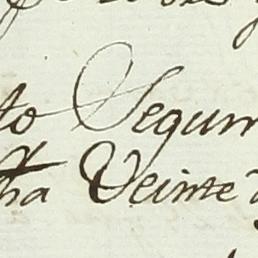 to Segum
ha Veinte d